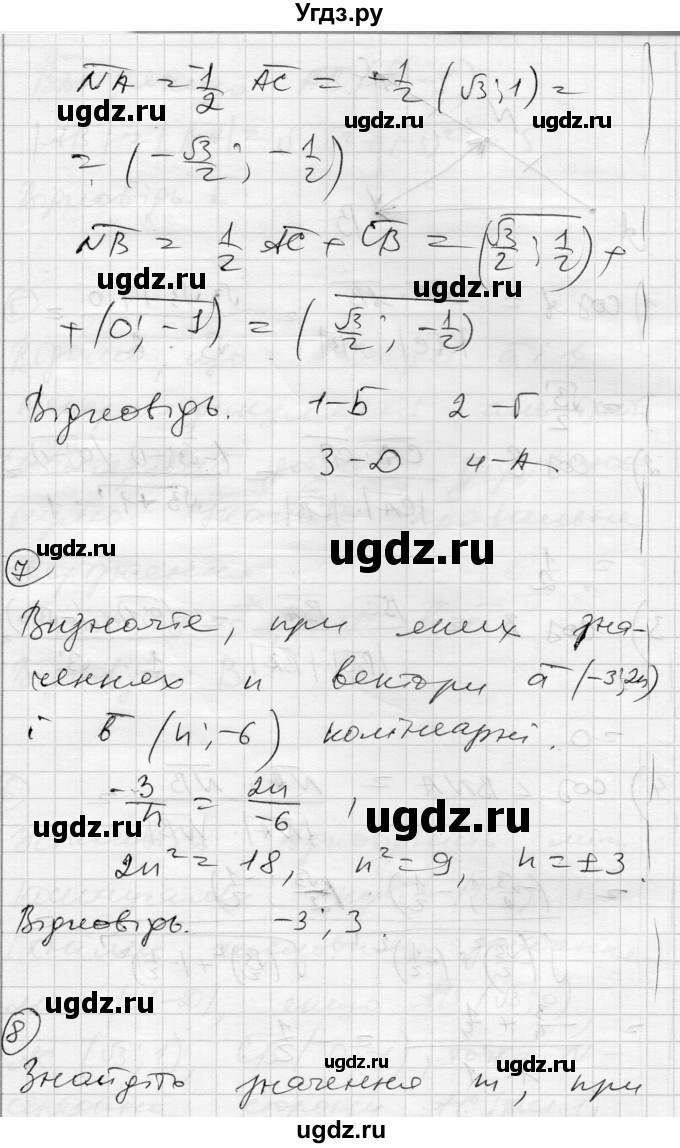 Угдз.ру
NA = -1/2 AC = -1/2 (√3; 1) =
ugdz.ru ugdz.ru ugdz.ru
= (-√3/2; -1/2)
NB = 1/2 AC + CB = (√3/2; 1/2) +
ugdz.ru
+ (0; -1) = (√3/2; -1/2)
Відповідь. 1-Б 2-Г
3-D 4-А
ugdz.ru ugdz.ru
7
Визначте, при яких зна-
ченнях n вектори a (-3; 2n)
і b (n; -6) колінеарні.
-3/n = 2n/-6,
ugdz.ru ugdz.ru
2n² = 18, n² = 9, n = ±3.
Відповідь. -3; 3.
ugdz.ru
8
ugdz.ru
Знайдіть значення m, при
ugdz.ru